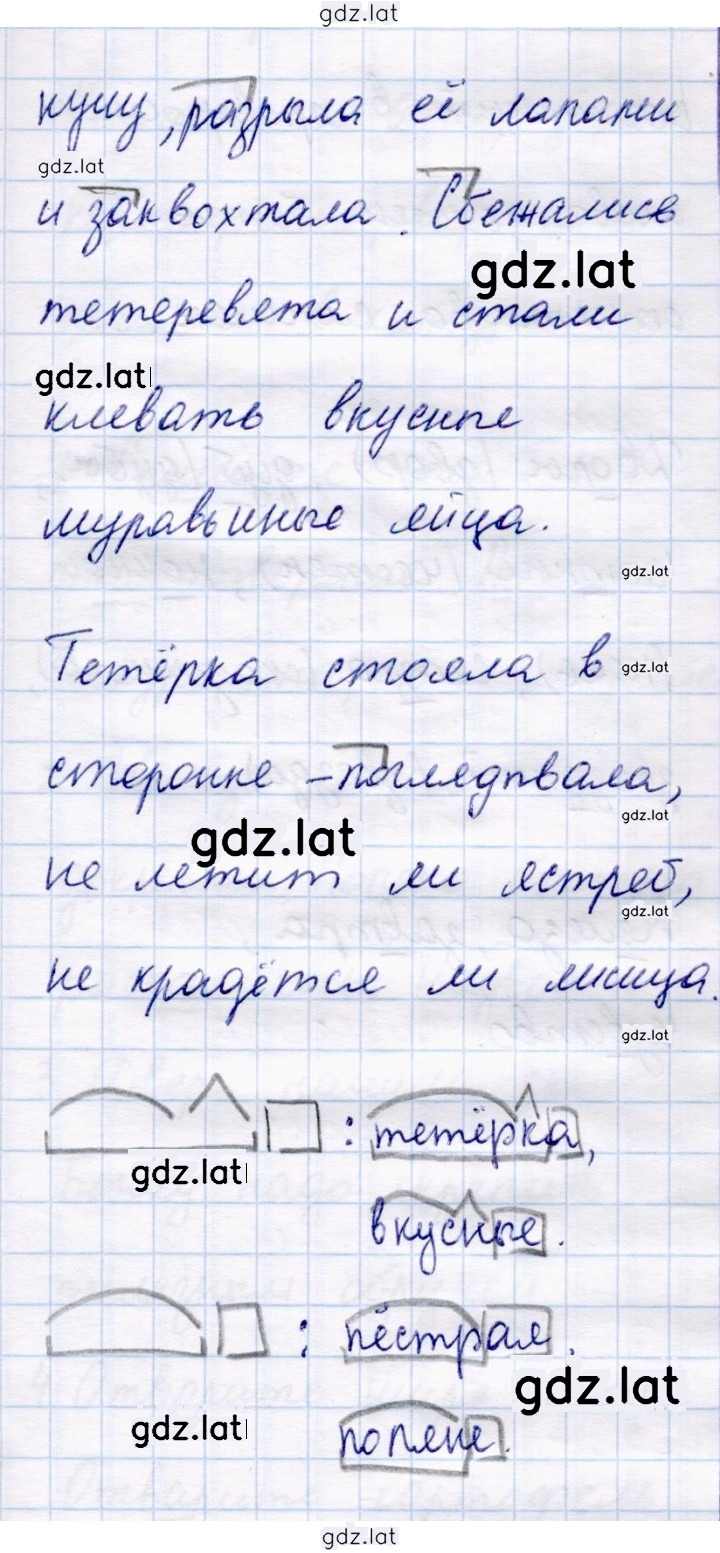 gdz.lat
кучу, разрыла её лапами
gdz.lat
и заквохтала. Сбежались
gdz.lat
тетеревята и стали
gdz.lat
клевать вкусные
муравьиные яйца.
gdz.lat
Тетёрка стояла в
gdz.lat
сторонке – поглядывала,
gdz.lat
gdz.lat
не летит ли ястреб,
gdz.lat
не крадётся ли лисица.
gdz.lat
: тетёрка,
gdz.lat
вкусные.
: пёстрая.
gdz.lat
gdz.lat
поляне.
gdz.lat